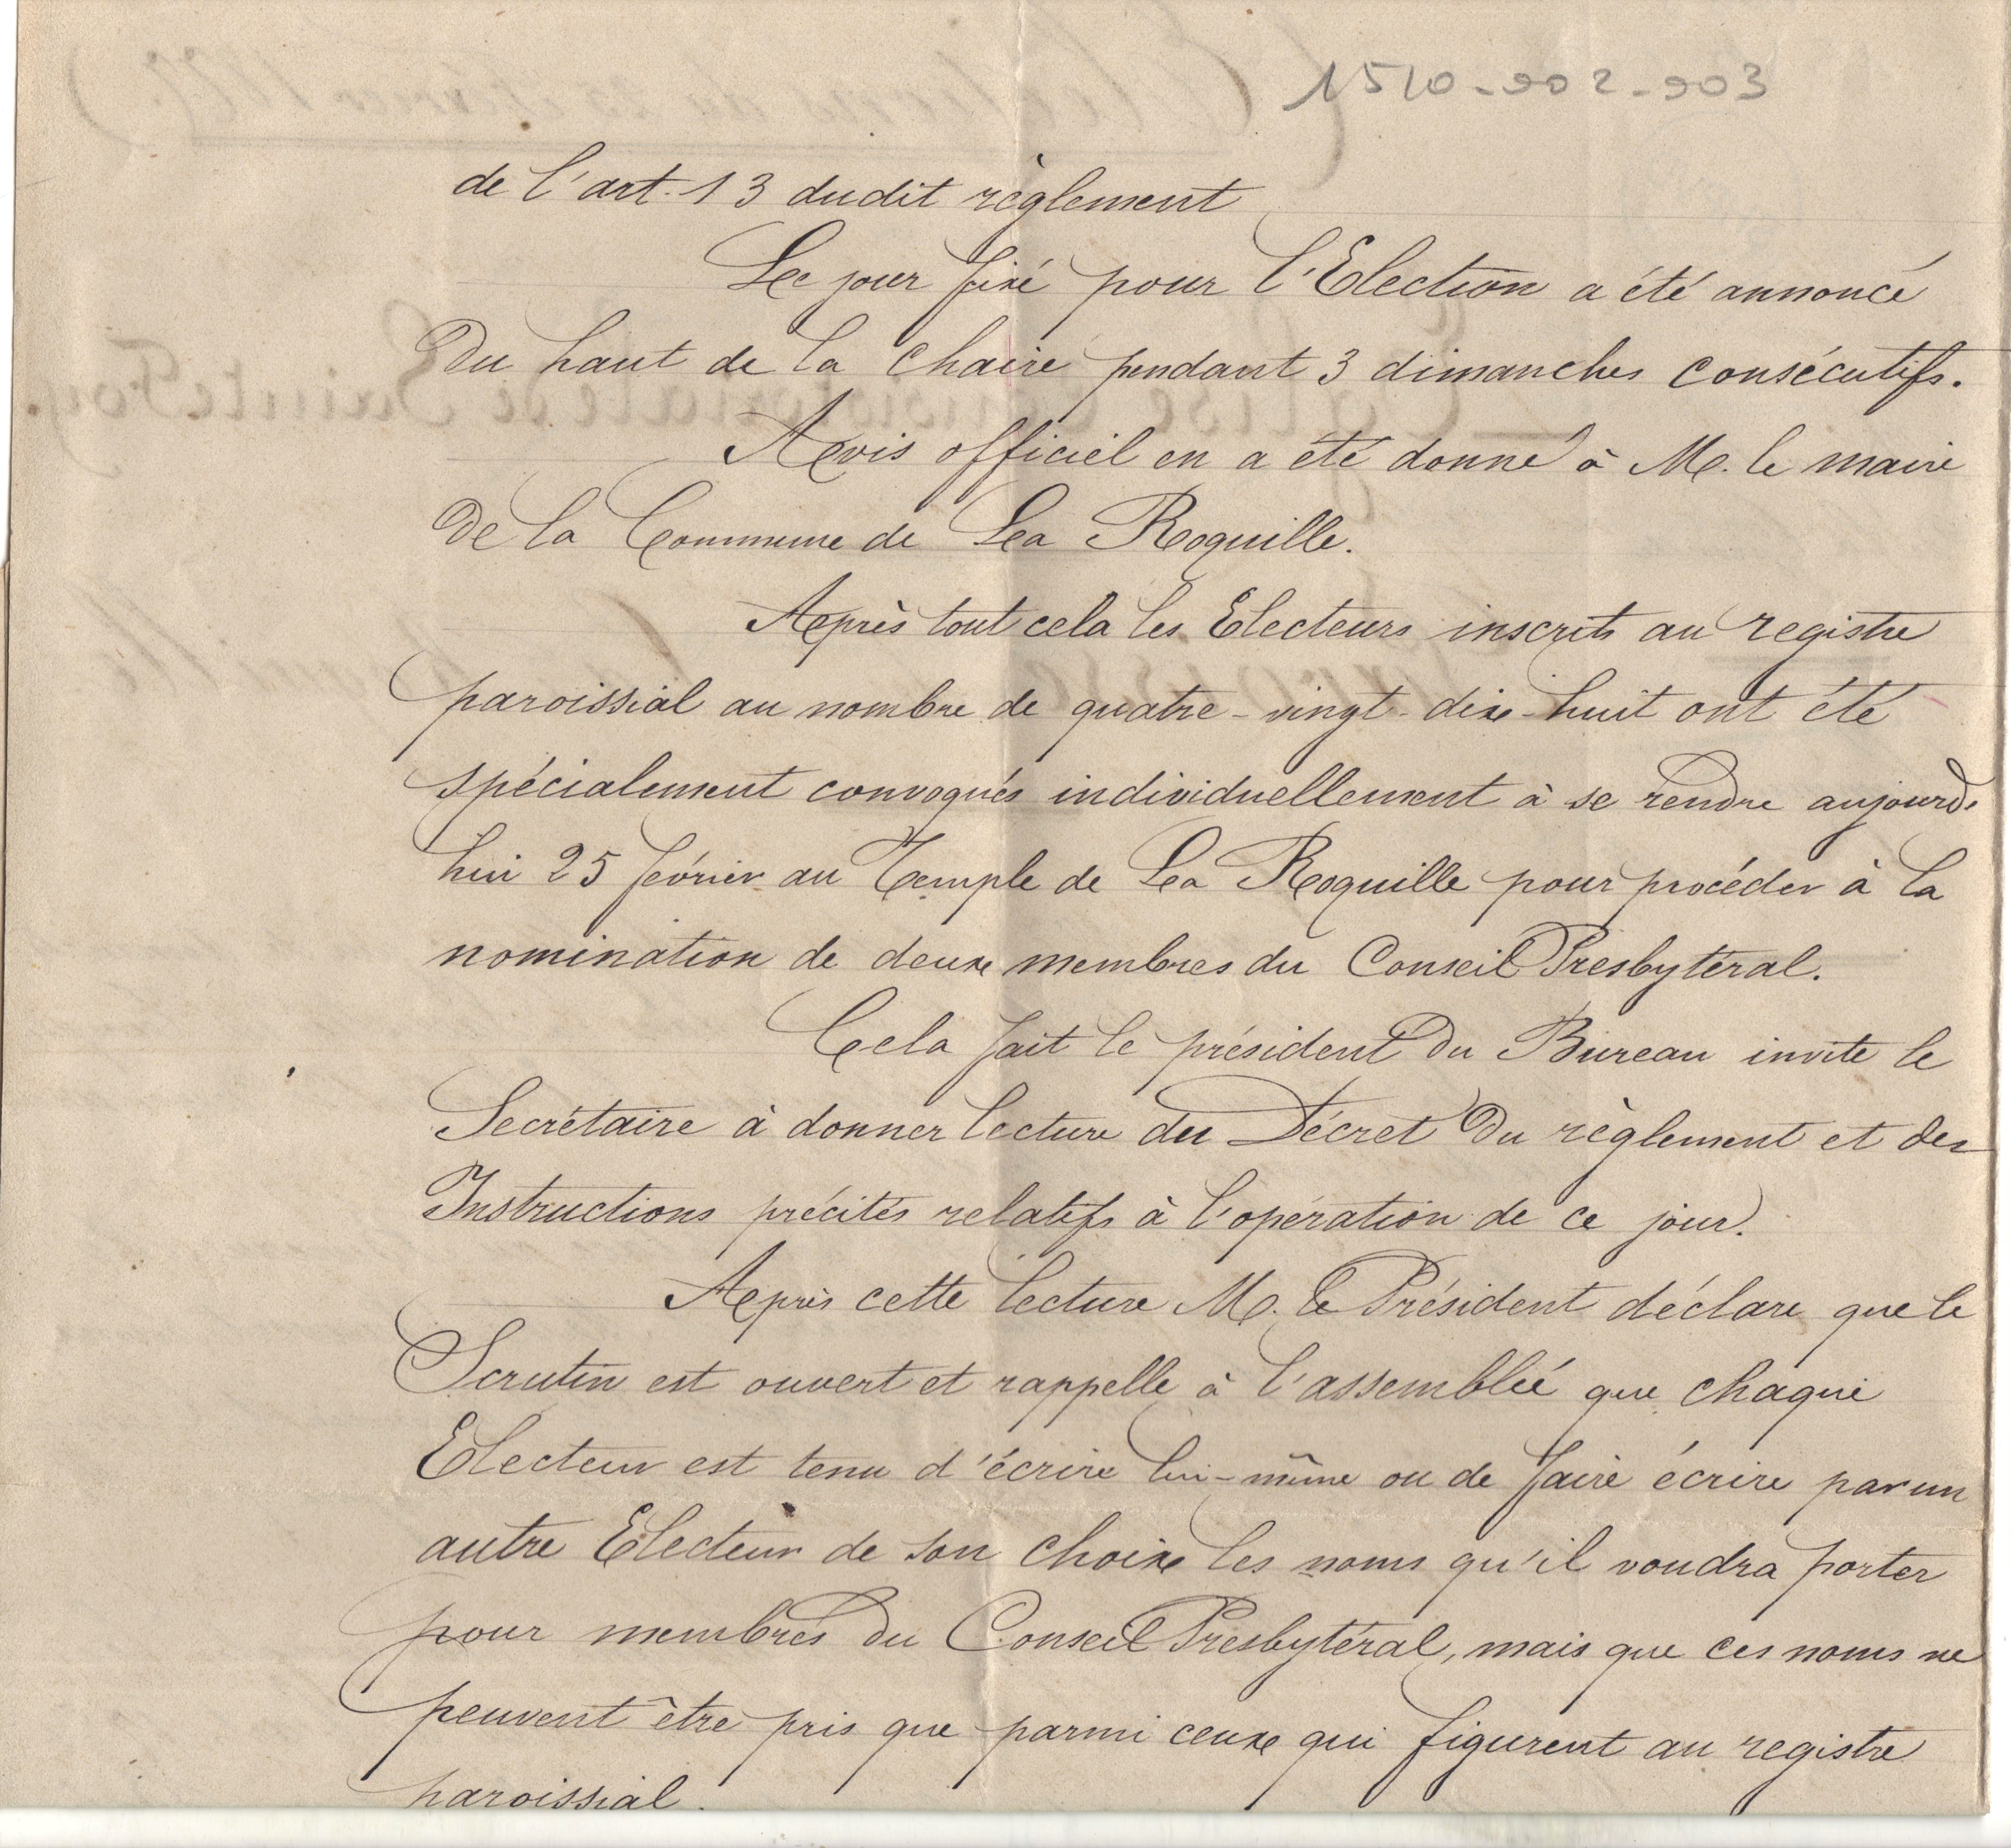 1510-902-903
de l'art. 13 dudit règlement
Le jour fixé pour l'Election a été annoncé
Du haut de la Chaire pendant 3 dimanches consécutifs.
Avis officiel en a été donné à M. le maire
De la Commune de La Roquille.
Après tout cela les Electeurs inscrits au registre
paroissial au nombre de quatre-vingt-dix-huit ont été
spécialement convoqués individuellement à se rendre aujourd'
hui 25 février au Temple de La Roquille pour procéder à la
nomination de deux membres du Conseil Presbytéral.
Cela fait le président Du Bureau invite le
Secrétaire à donner lecture du Décret Du règlement et des
Instructions précités relatifs à l'opération de ce jour.
Après cette lecture M. le Président déclare que le
Scrutin est ouvert et rappelle à l'assemblée que chaque
Electeur est tenu d'écrire lui-même ou de faire écrire par un
autre Electeur de son choix les noms qu'il voudra porter
pour membres Du Conseil Presbytéral, mais que ces noms ne
peuvent être pris que parmi ceux qui figurent au registre
paroissial.